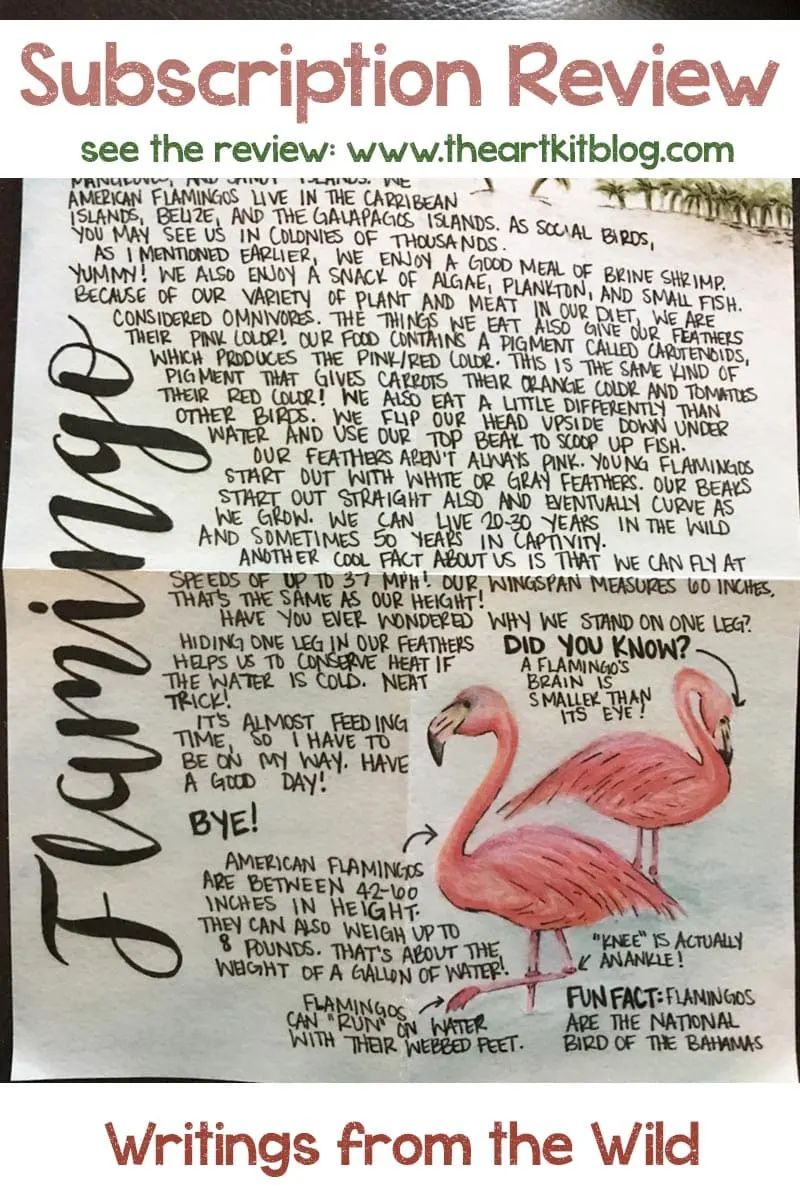 Subscription Review
see the review: www.theartkitblog.com
MANGROVES, AND SANDY ISLANDS. WE
AMERICAN FLAMINGOS LIVE IN THE CARRIBEAN
ISLANDS, BELIZE, AND THE GALAPAGOS ISLANDS. AS SOCIAL BIRDS,
YOU MAY SEE US IN COLONIES OF THOUSANDS.
AS I MENTIONED EARLIER, WE ENJOY A GOOD MEAL OF BRINE SHRIMP.
YUMMY! WE ALSO ENJOY A SNACK OF ALGAE, PLANKTON, AND SMALL FISH.
BECAUSE OF OUR VARIETY OF PLANT AND MEAT IN OUR DIET, WE ARE
CONSIDERED OMNIVORES. THE THINGS WE EAT ALSO GIVE OUR FEATHERS
THEIR PINK COLOR! OUR FOOD CONTAINS A PIGMENT CALLED CAROTENOIDS,
WHICH PRODUCES THE PINK/RED COLOR. THIS IS THE SAME KIND OF
PIGMENT THAT GIVES CARROTS THEIR ORANGE COLOR AND TOMATOES
THEIR RED COLOR! WE ALSO EAT A LITTLE DIFFERENTLY THAN
OTHER BIRDS. WE FLIP OUR HEAD UPSIDE DOWN UNDER
WATER AND USE OUR TOP BEAK TO SCOOP UP FISH.
OUR FEATHERS AREN'T ALWAYS PINK. YOUNG FLAMINGOS
START OUT WITH WHITE OR GRAY FEATHERS. OUR BEAKS
START OUT STRAIGHT ALSO AND EVENTUALLY CURVE AS
WE GROW. WE CAN LIVE 20-30 YEARS IN THE WILD
AND SOMETIMES 50 YEARS IN CAPTIVITY.
ANOTHER COOL FACT ABOUT US IS THAT WE CAN FLY AT
SPEEDS OF UP TO 37 MPH! OUR WINGSPAN MEASURES 60 INCHES.
THAT'S THE SAME AS OUR HEIGHT!
HAVE YOU EVER WONDERED WHY WE STAND ON ONE LEG?
HIDING ONE LEG IN OUR FEATHERS
HELPS US TO CONSERVE HEAT IF
THE WATER IS COLD. NEAT
TRICK!
IT'S ALMOST FEEDING
TIME, SO I HAVE TO
BE ON MY WAY. HAVE
A GOOD DAY!
BYE!
Flamingo
DID YOU KNOW?
A FLAMINGO'S
BRAIN IS
SMALLER THAN
ITS EYE!
AMERICAN FLAMINGOS
ARE BETWEEN 42-60
INCHES IN HEIGHT.
THEY CAN ALSO WEIGH UP TO
8 POUNDS. THAT'S ABOUT THE
WEIGHT OF A GALLON OF WATER!
"KNEE" IS ACTUALLY
AN ANKLE!
FLAMINGOS
CAN "RUN" ON WATER
WITH THEIR WEBBED FEET.
FUN FACT: FLAMINGOS
ARE THE NATIONAL
BIRD OF THE BAHAMAS
Writings from the Wild